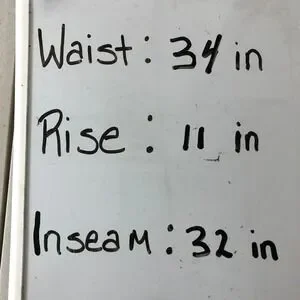 Waist: 34 in
Rise: 11 in
Inseam: 32 in